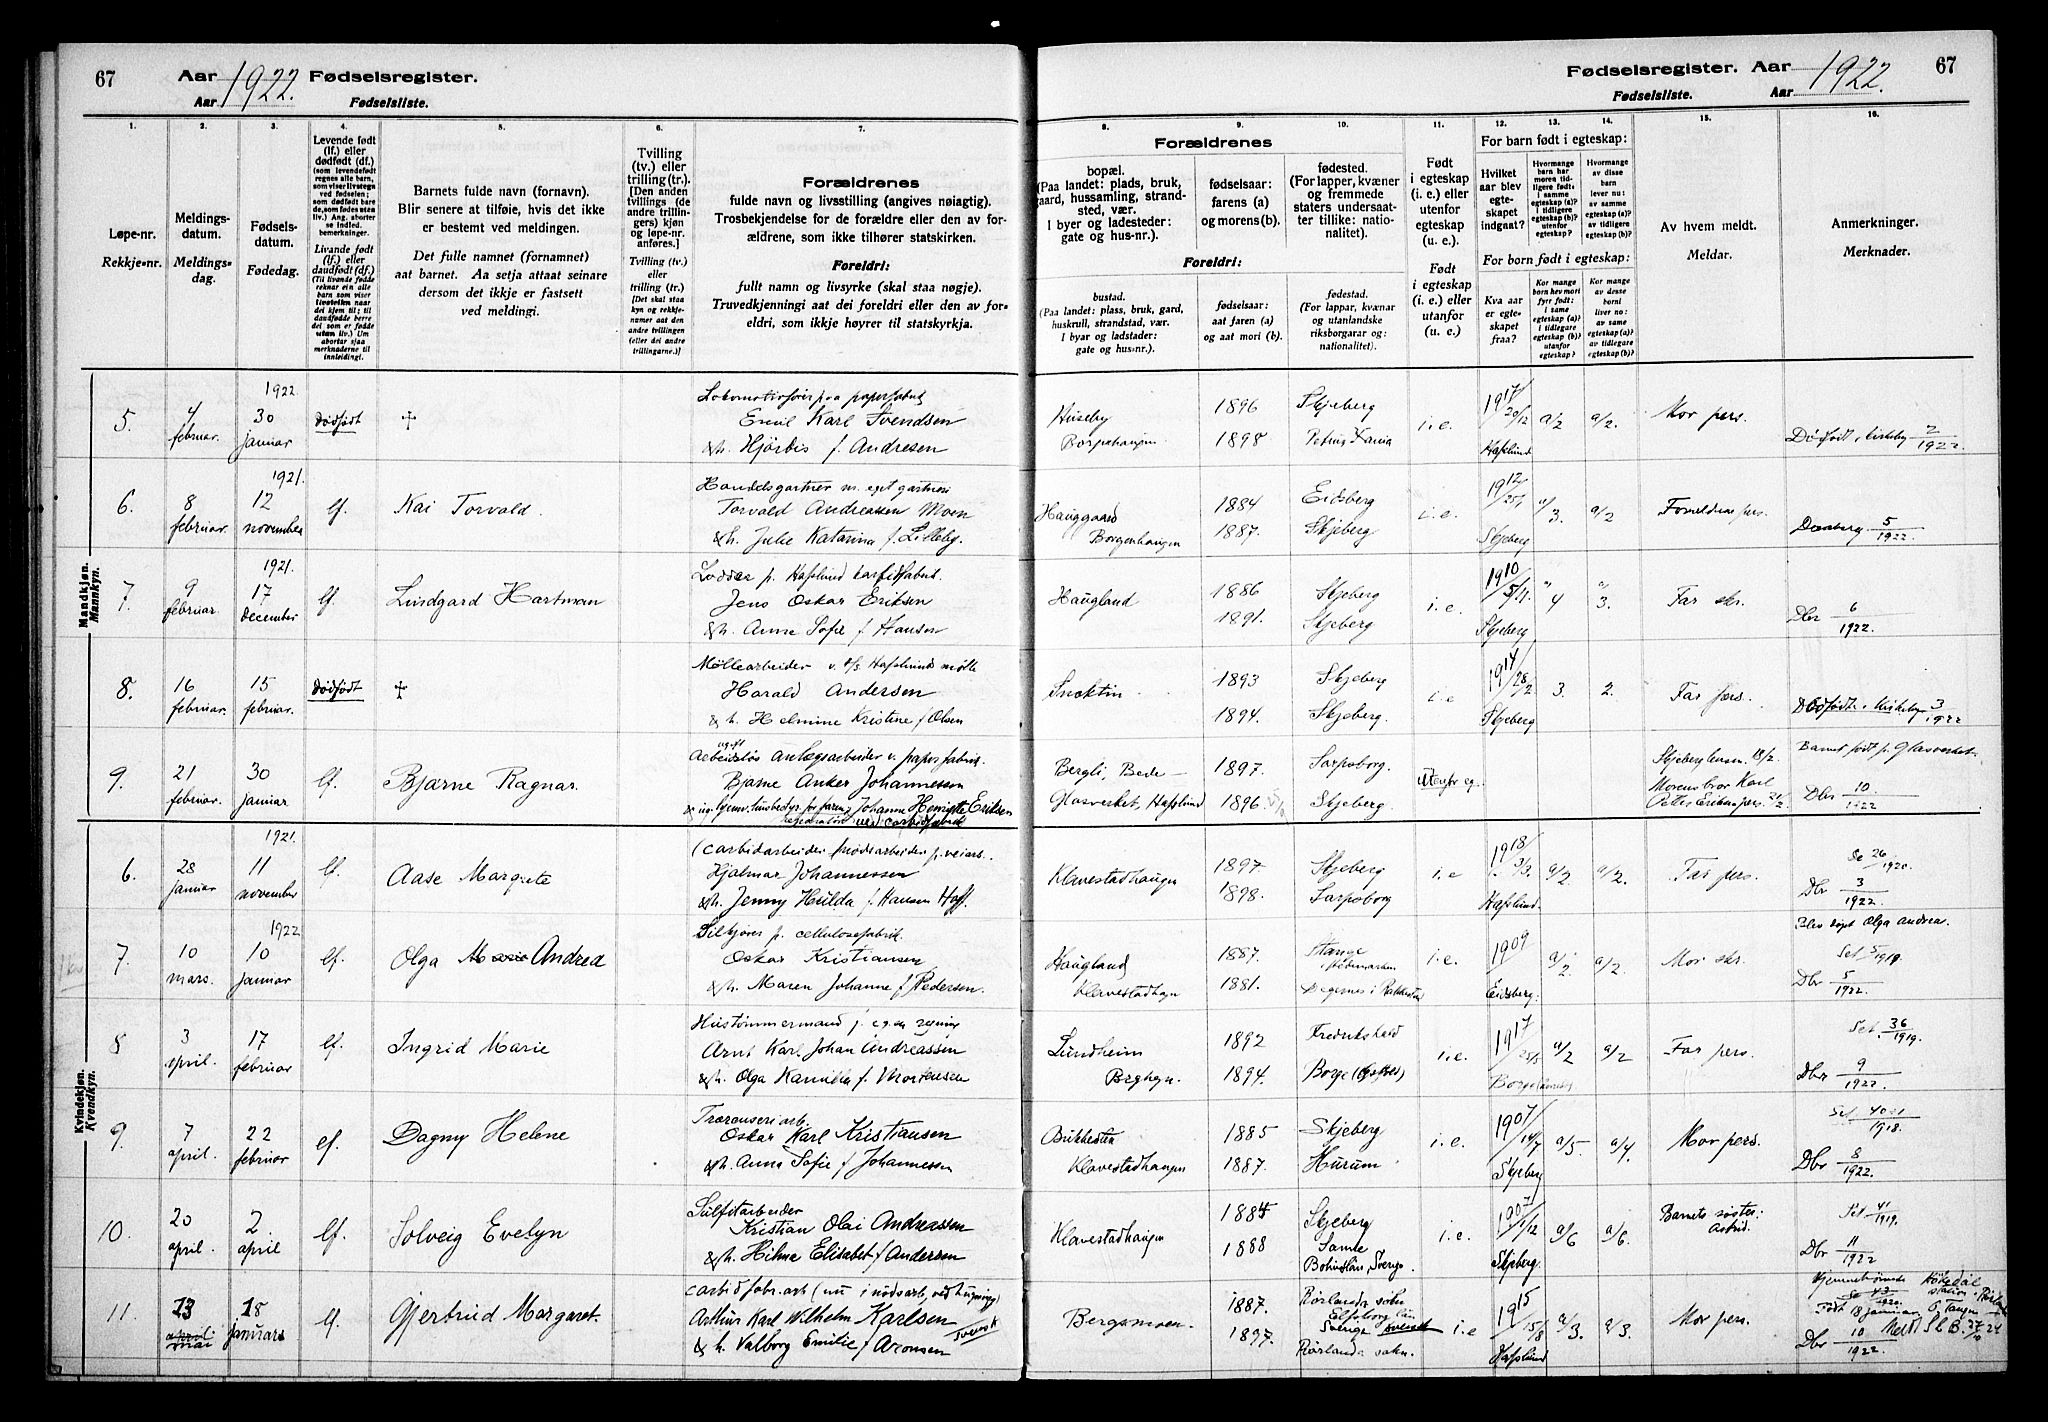 67 Aar 1922. Fødselsregister.
Aar Fødselsliste.
Fødselsregister. Aar 1922. 67
Fødselsliste. Aar
1.
Løpe-nr.
Rekkje-nr.
2.
Meldings-
datum.
Meldings-
dag.
3.
Fødsels-
datum.
Fødedag.
4.
Levende født
(lf.) eller
dødfødt (df.)
(som levendefødt
regnes alle barn,
som viser livstegn
ved fødselen;
som dødfødt bare
de, som fødes uten
liv.) Ang. aborter
se indled.
bemerkninger.
Livande født
(lf.) eller
daudfødt (df.)
(Til livande fødde
reknar ein alle
barn som viser
livsteikn naar
dei kjem til; til
daudfødde berre
dei som er fødde
utan liv.) Um
abortar sjaa
merknaderne til
innleidingi.
5.
Barnets fulde navn (fornavn).
Blir senere at tilføie, hvis det ikke
er bestemt ved meldingen.
Det fulle namnet (fornamnet)
aat barnet. Aa setja attaat seinare
dersom det ikkje er fastsett
ved meldingi.
6.
Tvilling
(tv.) eller
trilling (tr.)
[Den anden
tvillings (de
andre trillin-
gers) kjøn
og løpe-nr.
anføres.]
Tvilling (tv.)
eller
trilling (tr.)
[Det skal staa
kyn og rekkje-
numer aat den
andre tvillingen
(eller dei andre
trillingarne.)]
7.
Forældrenes
fulde navn og livsstilling (angives nøiagtig).
Trosbekjendelse for de forældre eller den av for-
ældrene, som ikke tilhører statskirken.
Foreldri:
fullt namn og livsyrke (skal staa nøgje).
Truvedkjenningi aat dei foreldri eller den av for-
eldri, som ikkje høyrer til statskyrkja.
Forældrenes
8.
bopæl.
(Paa landet: plads, bruk,
gaard, hussamling, strand-
sted, vær.
I byer og ladesteder:
gate og hus-nr.).
9.
fødselsaar:
farens (a)
og morens (b).
10.
fødested.
(For lapper, kvæner
og fremmede
staters undersaat-
ter tillike: natio-
nalitet).
Foreldri:
bustad.
(Paa landet: plass, bruk, gard,
huskrull, strandstad, vær.
I byar og ladstader:
gate og hus-nr.).
fødselsaar:
aat faren (a)
og aat mori (b).
fødestad.
(For lappar, kvænar
og utanlandske
riksborgarar og:
nationalitet).
11.
Født
i egteskap
(i. e.) eller
utenfor
egteskap
(u. e.).
Født
i egteskap
(i. e.) eller
utanfor
(u. e.).
For barn født i egteskap:
12.
Hvilket
aar blev
egte-
skapet
indgaat?
13.
Hvormange
barn har
moren tid-
ligere født:
i samme
egteskap (a)?
i tidligere
egteskap (b)?
utenfor
egteskap?
14.
Hvormange
av disse
barn
lever nu:
av samme
egteskap (a)?
av tidligere
egteskap (b)?
For born født i egteskap:
Kva aar
er egte-
skapet
fraa?
Kor mange
born hev mori
fyrr født:
i same
egteskap (a)?
i tidlegare
egteskap (b)?
utanfor
egteskap?
Kor mange
av desse
borni
liver no:
av same
egteskap (a)?
av tidlegare
egteskap (b)?
15.
Av hvem meldt.
Meldar.
16.
Anmerkninger.
Merknader.
Mandkjøn.
Mannkyn.
5. 4 februar. 1922. 30 januar Dødfødt +
Lokomotivfører paa papirfabrik
Emil Karl Svendsen
&h. Hjørdis f. Andresen
Huseby 1896 Skjeberg
1898
i. e. 1917 20/12 Hafslund a/2 a/2. Mor pers.
Dødfødt 2/1922.
6. 8 februar. 1921. 12 november lf. Kai Torvald.
Handelsgartner m. eget gartneri
Torvald Andreassen Moen
&h. Julie Katarina f. Lilleby.
Hauggaard Borgenhaugen
1884 Eidsberg
1887. Skjeberg
i. e. 1912 25/1 Skjeberg a/3. a/2 Forældrene pers.
5/1922.
7. 9 februar. 1921. 17 december lf. Lindgard Hartman
Jens Oskar Eriksen
&h. Anna Sofie f Hansen
Haugland 1886 Skjeberg
1891. Skjeberg
i. e. 1910 5/11. Skjeberg 4 3. Far skr.
Dbr 6/1922.
8. 16 februar. 15 februar. Dødfødt +
Møllearbeider v. A/S Hafslunds mølle
Harald Andersen
& h. Helmine Kristine f Olsen
1893 Skjeberg
1894. Skjeberg.
i. e 1914 28/2 Skjeberg 3. 2. Far pers.
Dødfødt 3/1922
9. 21 februar. 30 januar lf. Bjarne Ragnar.
ugift
Arbeidsløs Anlægsarbeider v. papirfabrik.
Bjarne Anker Johannessen
Johanne Henriette Eriksen
Bergli, Bede
Glasverket, Hafslund
1897. Sarpsborg.
1896. Skjeberg.
Utenfor eg.
Skjeberg lensm. 18/2.
Morens bror Karl
Petter Eriksen pers. 21/2.
Barnet født p. Glasverket.
Dbr 10./1922
Kvindekjøn.
Kvendkyn.
6. 28 januar 1921. 11 november lf. Aase Margrete
(Carbidarbeider) nødsarbeider p. veiarb.
Hjalmar Johannessen
&h. Jenny Hilda f. Hansen Hoff.
Klavestadhaugen
1897. Skjeberg
1898. Sarpsborg
i. e 1918 3/3. Hafslund. a/2 a/2. Far pers.
Se 26/1920.
Dbr 3/1922.
7. 10 mars. 1922 10 januar lf. Olga Marie Andrea
Silkjører p. cellulosefabrik.
Oskar Kristiansen
&h. Maren Johanne f Pedersen.
Haugland Klavestadhgn
1887. Stange i Hedemarken
1881. Degernes i Rakkestad
i. e. 1909 Eidsberg. a/2 a/2. Mor skr.
Blev døpt Olga Andrea.
Set 5/1919.
Dbr 5/1922.
8 3 april. 17 februar lf. Ingrid Marie
Hustømmermand f. egen regning
Arnt Karl Johan Andreassen
&h. Olga Kamilla f. Mortensen
Lundheim Brghgn.
1892 Fredrikshald
1894. Borge
i. e. 1917 25/5 Borge a/2 a/2 Far pers.
Set. 36/1919.
Dbr 9/1922.
9. 7 april. 22 februar lf. Dagny Helene
Oskar Karl Kristiansen
&h. Anna Sofie f Johannessen
Klavestadhaugen
1885 Skjeberg
1887. Hurum
i. e. 1907 14/7 Skjeberg a/5. a/4. Mor pers.
1918.
Dbr 8/1922.
10. 20 april. 2. april lf. Solveig Evelyn
Sulfitarbeider
Kristian Olai Andreassen
&h. Hilma Elisabet f Andersen
Klavestadhaugen
1884 Skjeberg
1888 Sanne
Bohuslän, Sverge.
i. e. 1907 1/12 Skjeberg a/6 a/6. Barnets søster: Astrid.
Set 41/1919.
Dbr 11/1922
11. 13 april mai 18 januar lf. Gjertrud Margaret.
Carbidfabr.arb (nu i nødsarb. ved
Arthur Karl Wilhelm Karlsen
& h. Valborg Emilie f Aronsen svensk
Bergsmoen.
1887. Rørlanda sokn
Elfsborg län
Sverige svensk
1897. Rørlanda sokn.
i. e 1915 15/8 Hafslund a/3. a/3. Mor pers.
Se 43/1920.
Født 18 januar
Dbr 10/1922.